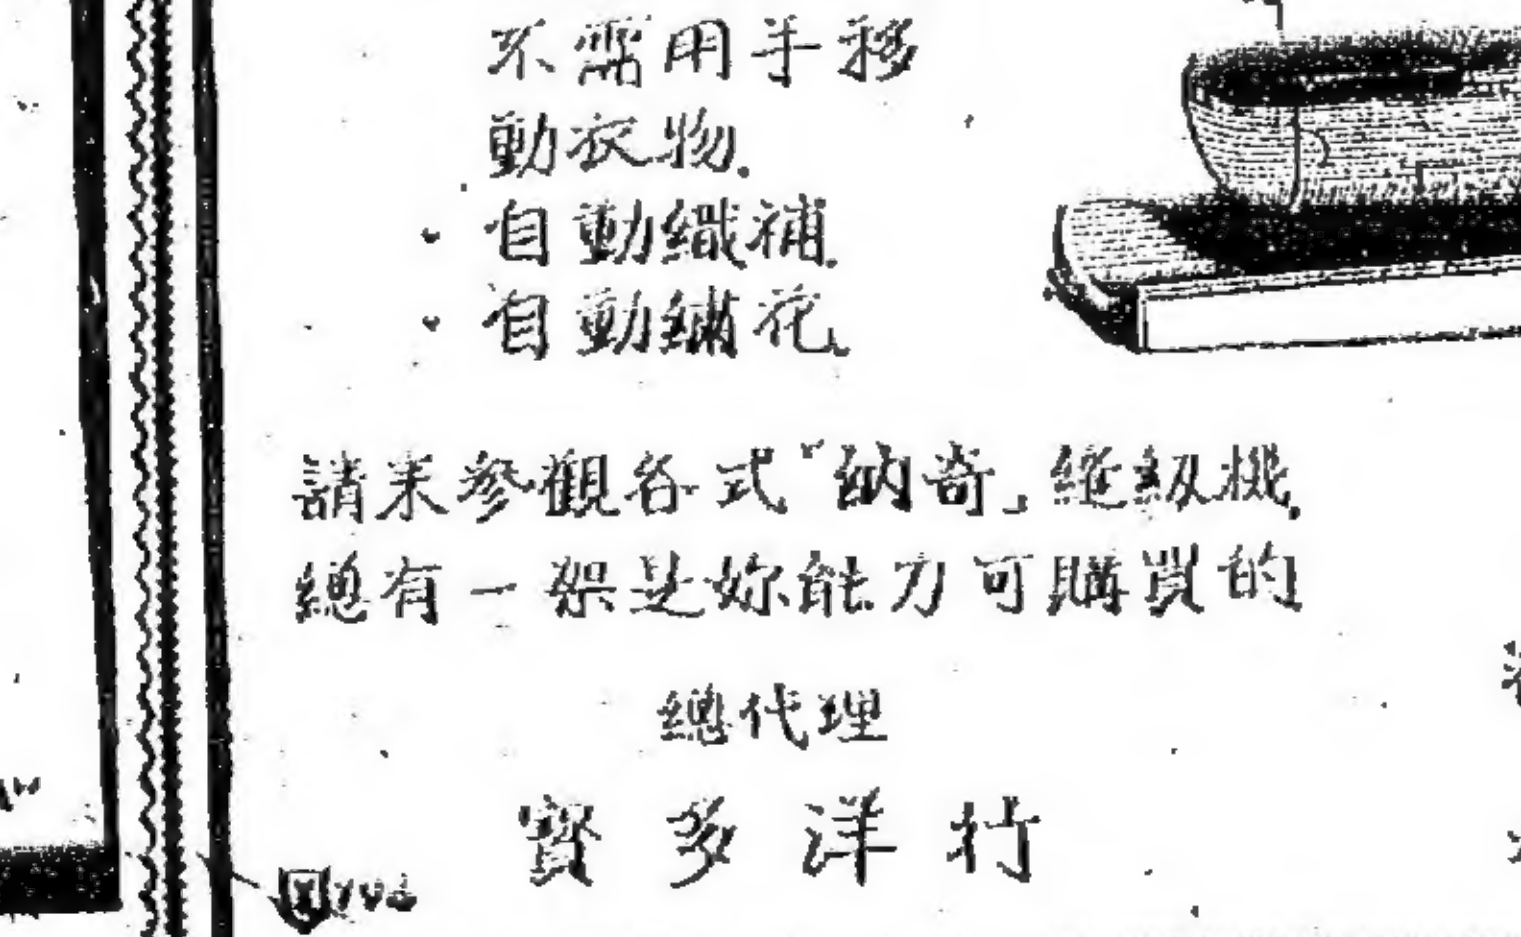 不需用手移
動衣物.
· 自動織補.
· 自動繡花.
請来參觀各式「納奇」縫級機.
總有一架是妳能力可購買的
總代理
寶多洋行